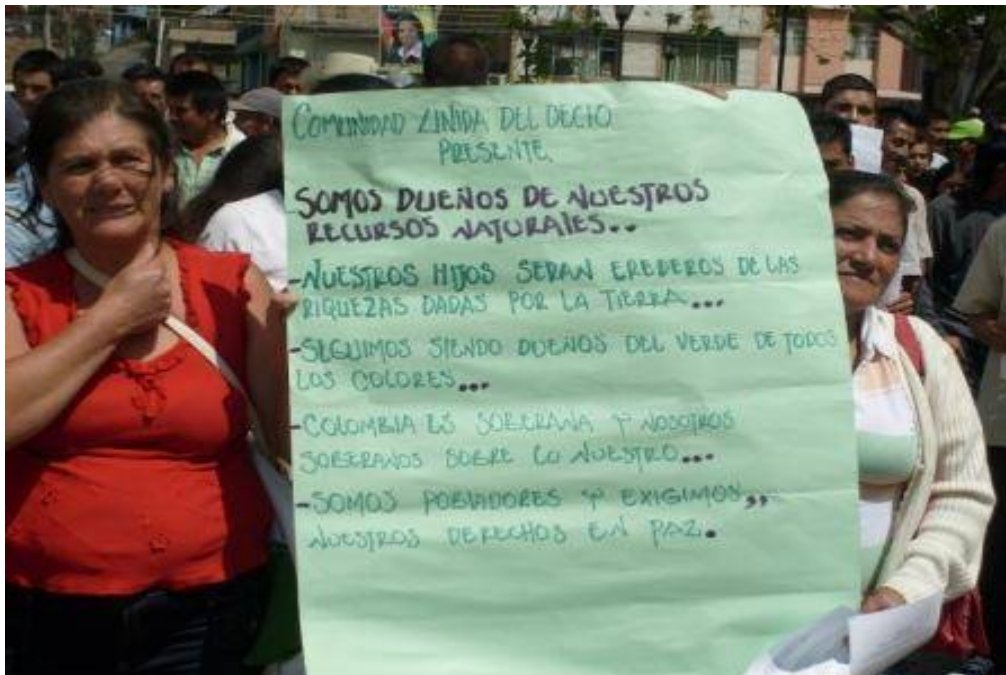 COMUNIDAD UNIDA DEL DECIO
PRESENTE.
SOMOS DUEÑOS DE NUESTROS
RECURSOS NATURALES..
-NUESTROS HIJOS SERAN EREDEROS DE LAS
RIQUEZAS DADAS POR LA TIERRA...
-SEGUIMOS SIENDO DUEÑOS DEL VERDE DE TODOS
LOS COLORES...
-COLOMBIA ES SOBERANA Y NOSOTROS
SOBERANOS SOBRE LO NUESTRO...
-SOMOS POBLADORES Y EXIGIMOS,,
NUESTROS DERECHOS EN PAZ.